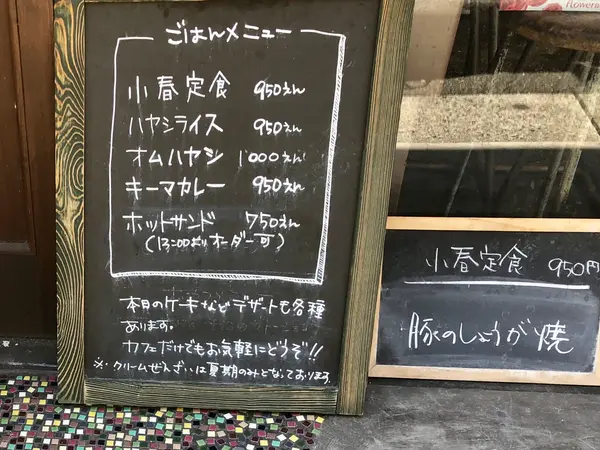 ごはんメニュー
小春定食 950えん
ハヤシライス 950えん
オムハヤシ 1000えん
キーマカレー 950えん
ホットサンド 750えん
(13:00よりオーダー可)
本日のケーキなどデザートも各種
あります。
カフェだけでもお気軽にどうぞ!!
※・クリームぜんざいは夏期のみとなっております。
小春定食 950円
豚のしょうが焼